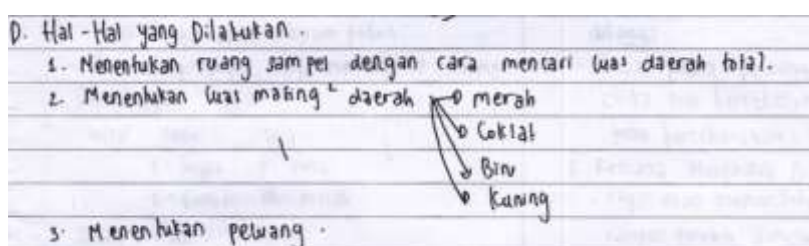 D. Hal-Hal yang Dilakukan.
1. Menentukan ruang sampel dengan cara mencari luas daerah total.
2. Menentukan luas masing² daerah → merah
→ Coklat
→ Biru
→ Kuning
3. Menentukan peluang.